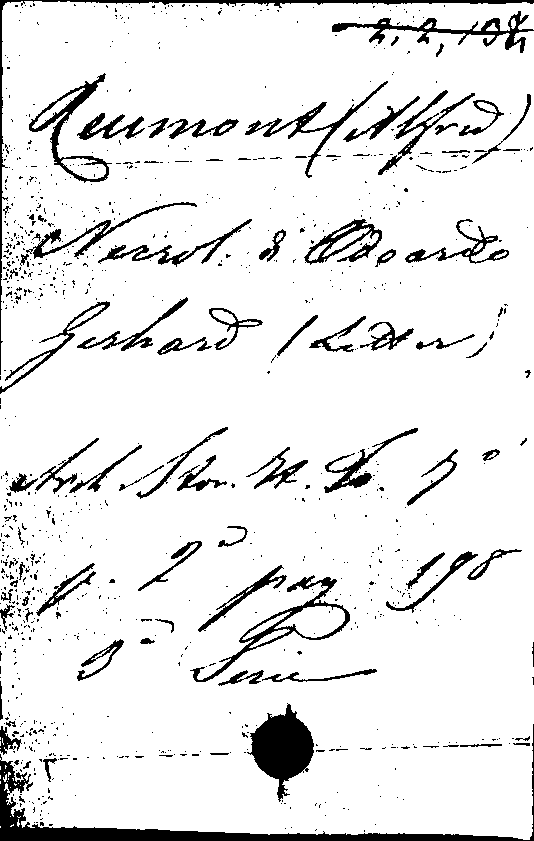 2, 2, 13
Reumont (Alfred)
Necrol. di Odoardo
Gerhard (Letter)
Arch. Stor. It. To. 5°
p. 2ª pag. 198
3ª Serie